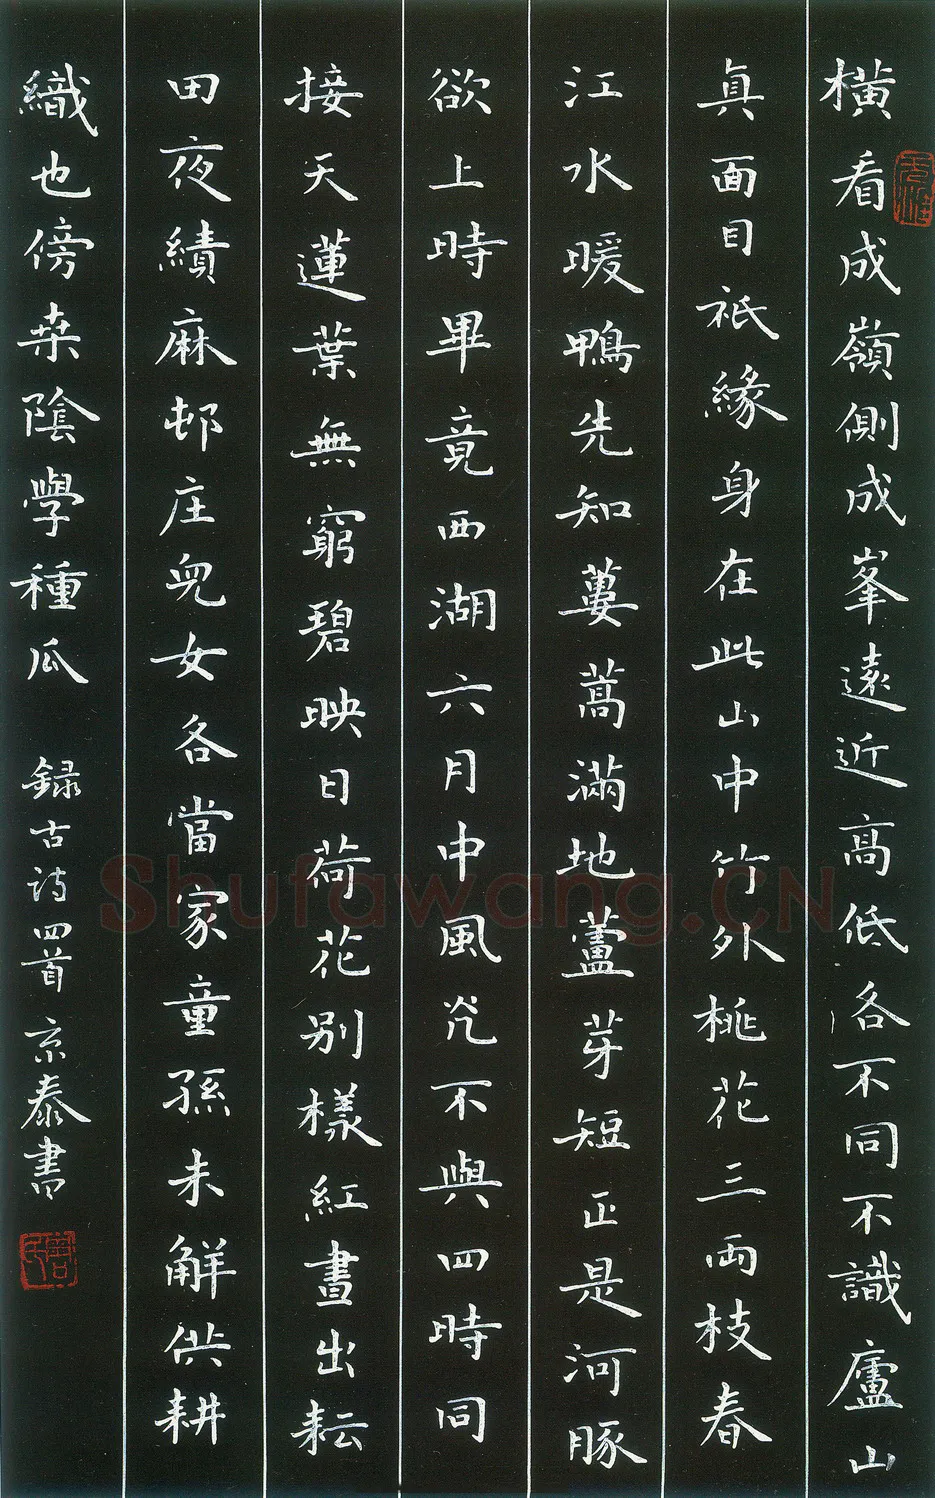 橫看成嶺側成峯遠近高低各不同不識廬山
真面目祇緣身在此山中竹外桃花三兩枝春
江水暖鴨先知蔞蒿滿地蘆芽短正是河豚
欲上時畢竟西湖六月中風光不與四時同
接天蓮葉無窮碧映日荷花別樣紅晝出耘
田夜績麻邨庄兒女各當家童孫未解供耕
織也傍桒陰學種瓜
録古詩四首京泰書
Shufawang.CN